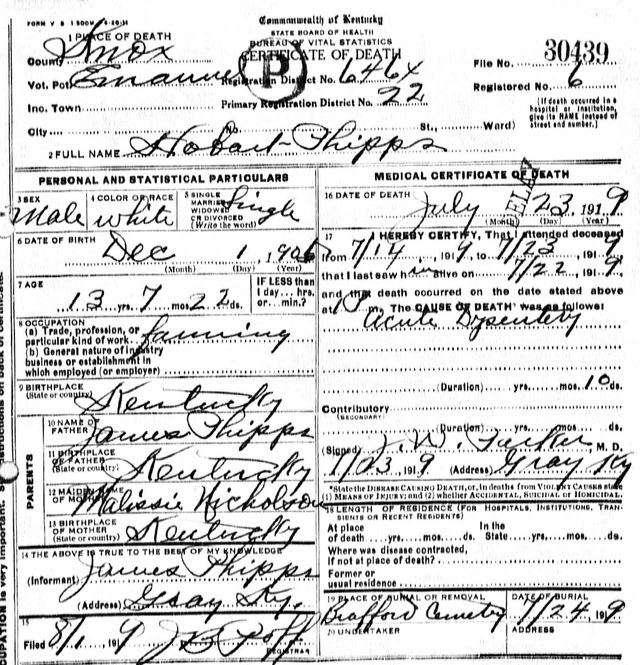 FORM V S 1 500M 5-20-14
Commonwealth of Kentucky
STATE BOARD OF HEALTH
BUREAU OF VITAL STATISTICS
CERTIFICATE OF DEATH
1 PLACE OF DEATH
County Knox
Vot. Pct. Emanuel Registration District No. 6464
Inc. Town Primary Registration District No. 22
City No. St., Ward)
File No. 30439
Registered No. 6
(If death occurred in a hospital or institution, give its NAME instead of street and number.)
P
2 FULL NAME Hobart Phipps
PERSONAL AND STATISTICAL PARTICULARS
3 SEX Male
4 COLOR OR RACE white
5 SINGLE MARRIED WIDOWED OR DIVORCED (Write the word) Single
6 DATE OF BIRTH Dec 1, 190
(Month) (Day) (Year)
7 AGE 13 yrs. 7 mos. 22 ds.
IF LESS than 1 day... hrs. or... min.?
8 OCCUPATION
(a) Trade, profession, or particular kind of work farming
(b) General nature of industry business or establishment in which employed (or employer)
9 BIRTHPLACE (State or country) Kentucky
PARENTS
10 NAME OF FATHER James Phipps
11 BIRTHPLACE OF FATHER (State or country) Kentucky
12 MAIDEN NAME OF MOTHER Malissie Nicholson
13 BIRTHPLACE OF MOTHER (State or country) Kentucky
14 THE ABOVE IS TRUE TO THE BEST OF MY KNOWLEDGE
(Informant) James Phipps
(Address) Gray Ky.
15
Filed 8/1 1919
REGISTRAR
MEDICAL CERTIFICATE OF DEATH
DELAY
16 DATE OF DEATH July 23 1919
(Month) (Day) (Year)
17 I HEREBY CERTIFY, That I attended deceased
from 7/14, 1919, to 7/23 1919
that I last saw him alive on 7/22 1919
and that death occurred on the date stated above
at m. The CAUSE OF DEATH* was as follows:
Acute Dysentery
(Duration) yrs. mos. 10 ds.
Contributory
(SECONDARY)
(Duration) yrs. mos. ds.
(Signed) J. W. Parker M. D.
1/23 1919 (Address) Gray Ky
*State the DISEASE CAUSING DEATH, or, in deaths from VIOLENT CAUSES state
(1) MEANS OF INJURY; and (2) whether ACCIDENTAL, SUICIDAL or HOMICIDAL.
18 LENGTH OF RESIDENCE (FOR HOSPITALS, INSTITUTIONS, TRANSIENTS OR RECENT RESIDENTS)
At place of death yrs. mos. ds. In the State yrs. mos. ds.
Where was disease contracted,
if not at place of death?
Former or
usual residence
19 PLACE OF BURIAL OR REMOVAL Brafford Cemetery
DATE OF BURIAL 7/24 1919
20 UNDERTAKER
ADDRESS